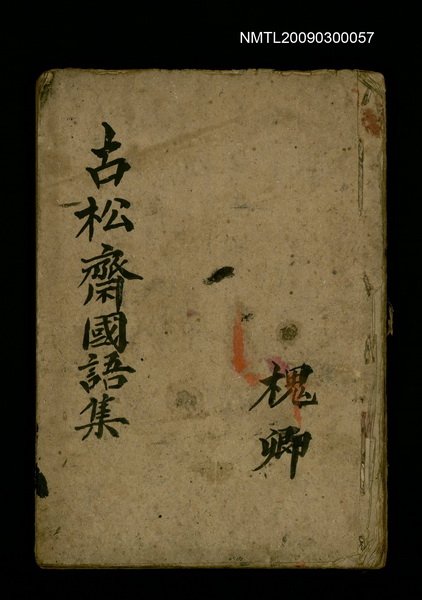 NMTL20090300057
古松齋國語集
槐卿